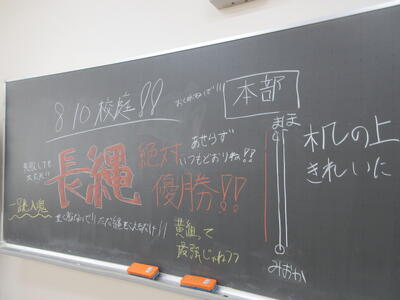 8:10 校庭!!
本部
失敗しても
大丈夫!!
長縄
絶対
優勝!!
あせらず
いつもどおりね??
まま
みおか
机の上
きれいに
一球入魂
黄組って
最強じゃね??